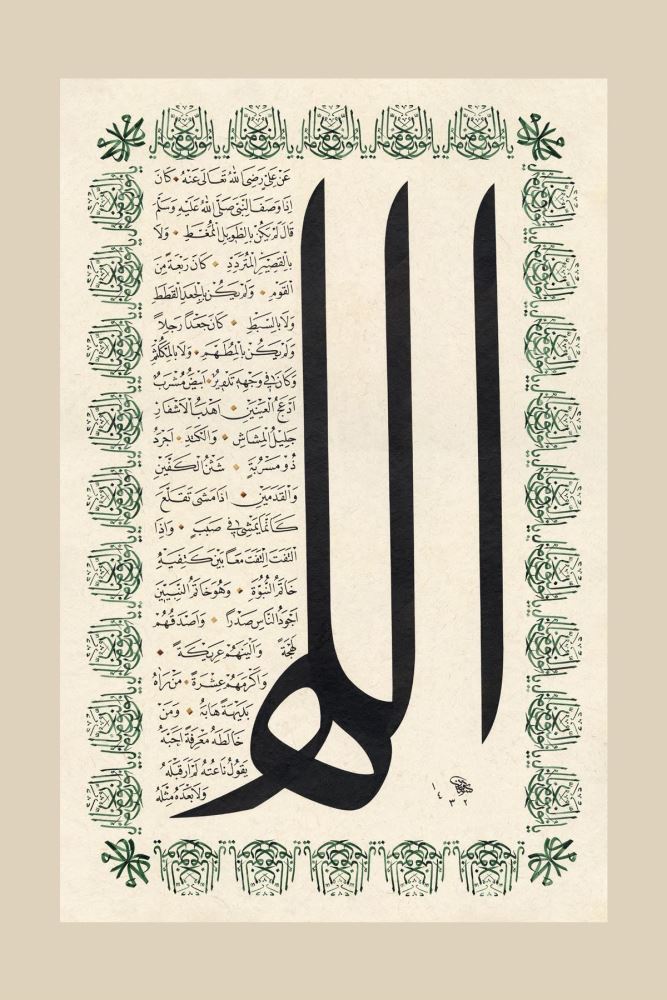 الله
عَنْ عَلِيٍّ رَضِيَ اللهُ تَعَالَى عَنْهُ كَانَ
إِذَا وَصَفَ النَّبِيَّ صَلَّى اللهُ عَلَيْهِ وَسَلَّمَ
قَالَ لَمْ يَكُنْ بِالطَّوِيلِ الْمُمَّغِطِ وَلَا
بِالْقَصِيرِ الْمُتَرَدِّدِ كَانَ رَبْعَةً مِنَ
الْقَوْمِ وَلَمْ يَكُنْ بِالْجَعْدِ الْقَطَطِ
وَلَا بِالسَّبْطِ كَانَ جَعْدًا رَجِلًا
وَلَمْ يَكُنْ بِالْمُطَهَّمِ وَلَا بِالْمُكَلْثَمِ
وَكَانَ فِي وَجْهِهِ تَدْوِيرٌ أَبْيَضُ مُشْرَبٌ
أَدْعَجُ الْعَيْنَيْنِ أَهْدَبُ الْأَشْفَارِ
جَلِيلُ الْمُشَاشِ وَالْكَتَدِ أَجْرَدُ
ذُو مَسْرُبَةٍ شَثْنُ الْكَفَّيْنِ
وَالْقَدَمَيْنِ إِذَا مَشَى تَقَلَّعَ
كَأَنَّمَا يَمْشِي فِي صَبَبٍ وَإِذَا
الْتَفَتَ الْتَفَتَ مَعًا بَيْنَ كَتِفَيْهِ
خَاتَمُ النُّبُوَّةِ وَهُوَ خَاتَمُ النَّبِيِّينَ
أَجْوَدُ النَّاسِ صَدْرًا وَأَصْدَقُهُمْ
لَهْجَةً وَأَلْيَنُهُمْ عَرِيكَةً
وَأَكْرَمُهُمْ عِشْرَةً مَنْ رَآهُ
بَدِيهَةً هَابَهُ وَمَنْ
خَالَطَهُ مَعْرِفَةً أَحَبَّهُ
يَقُولُ نَاعِتُهُ لَمْ أَرَ قَبْلَهُ
وَلَا بَعْدَهُ مِثْلَهُ
١٤٣٢